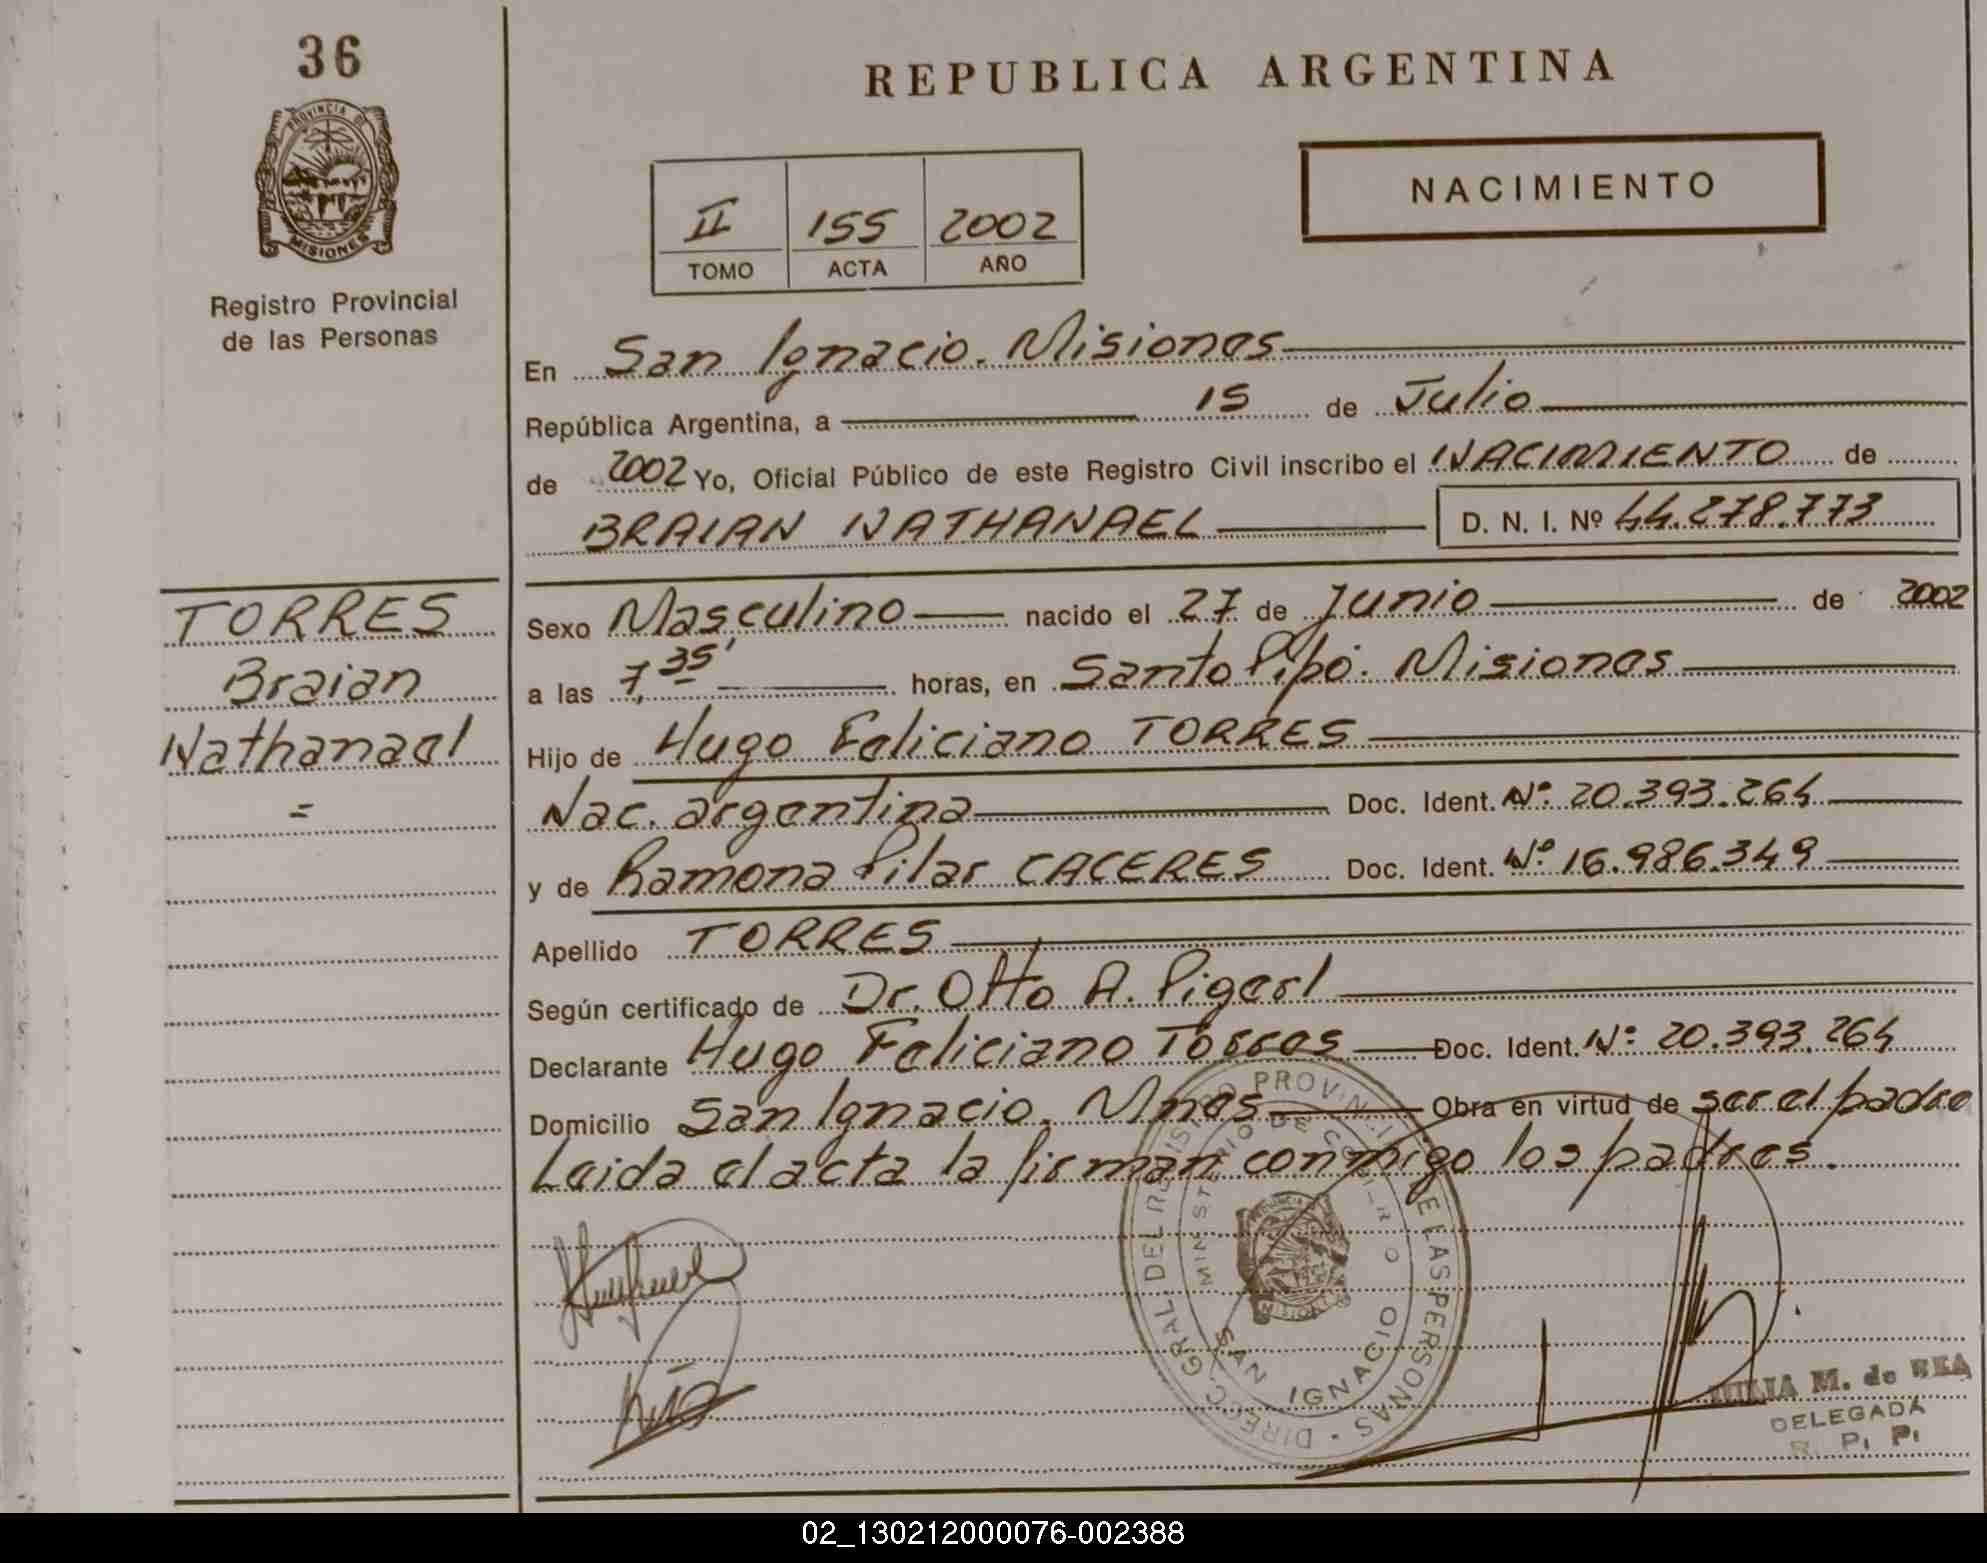 36
PROVINCIA DE
MISIONES
Registro Provincial
de las Personas
REPUBLICA ARGENTINA
NACIMIENTO
II 155 2002
TOMO ACTA AÑO
En San Ignacio. Misiones
República Argentina, a 15 de Julio
de 2002 Yo, Oficial Público de este Registro Civil inscribo el NACIMIENTO de
BRAIAN NATHANAEL D. N. I. Nº 44.278.773
TORRES
Braian
Nathanael
=
Sexo Masculino nacido el 27 de Junio de 2002
a las 7,35' horas, en Santo Pipó. Misiones
Hijo de Hugo Feliciano TORRES
Nac. argentina Doc. Ident. Nº 20.393.264
y de Ramona Pilar CACERES Doc. Ident. Nº 16.986.349
Apellido TORRES
Según certificado de Dr. Otto A. Pigerl
Declarante Hugo Feliciano Torres Doc. Ident. Nº 20.393.264
Domicilio San Ignacio. Mnes Obra en virtud de ser el padre
Leida el acta la firman conmigo los padres.
DIREC. GRAL. DEL REGISTRO PROVINCIAL DE LAS PERSONAS
MINISTERIO DE GOBIERNO
SAN IGNACIO
M. de
DELEGADA
R. P. P.
02_130212000076-002388